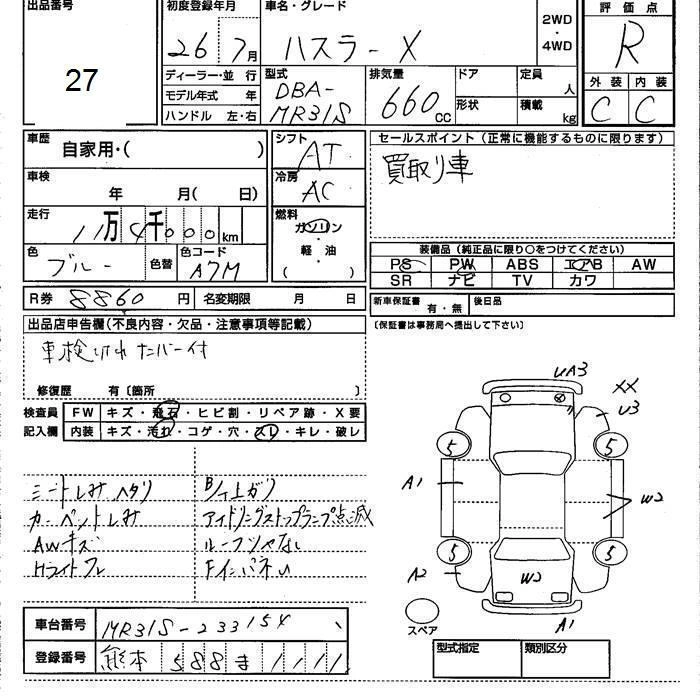 出品番号
27
初度登録年月
26 7月
車名・グレード
ハスラーX
2WD
・
4WD
評価点
R
ディーラー・並 行
モデル年式 年
ハンドル 左・右
型式
DBA-
MR31S
排気量
660 CC
ドア
形状
定員
人
積載
kg
外装 内装
C C
車歴
自家用・( )
車検
年 月( 日)
走行
11万4千000km
色
ブルー
色替
色コード
A7M
シフト
AT
冷房
AC
燃料
ガソリン
・
軽・油
( )
セールスポイント(正常に機能するものに限ります)
買取り車
装備品(純正品に限り○をつけてください)
PS PW ABS エアB AW
SR ナビ TV カワ
R券 8860円 名変期限 月 日
新車保証書 有・無 後日品
(保証書は事務局へ提出して下さい)
出品店申告欄(不良内容・欠品・注意事項等記載)
車検切れ ナンバー付
修復歴 有〔箇所 〕
検査員
記入欄
FW キズ・飛石・ヒビ割・リペア跡・X要
内装 キズ・汚れ・コゲ・穴・スリ・キレ・破レ
シートしみ ヘタリ
カーペットしみ
AWキズ
Hライトクスレ
アイドリングストップランプ点滅
UA3
XX
U3
5
5
A1
W2
5
5
A2
W2
A1
スペア
車台番号 MR31S-233154
登録番号 熊本 588 ま 1111
型式指定 類別区分